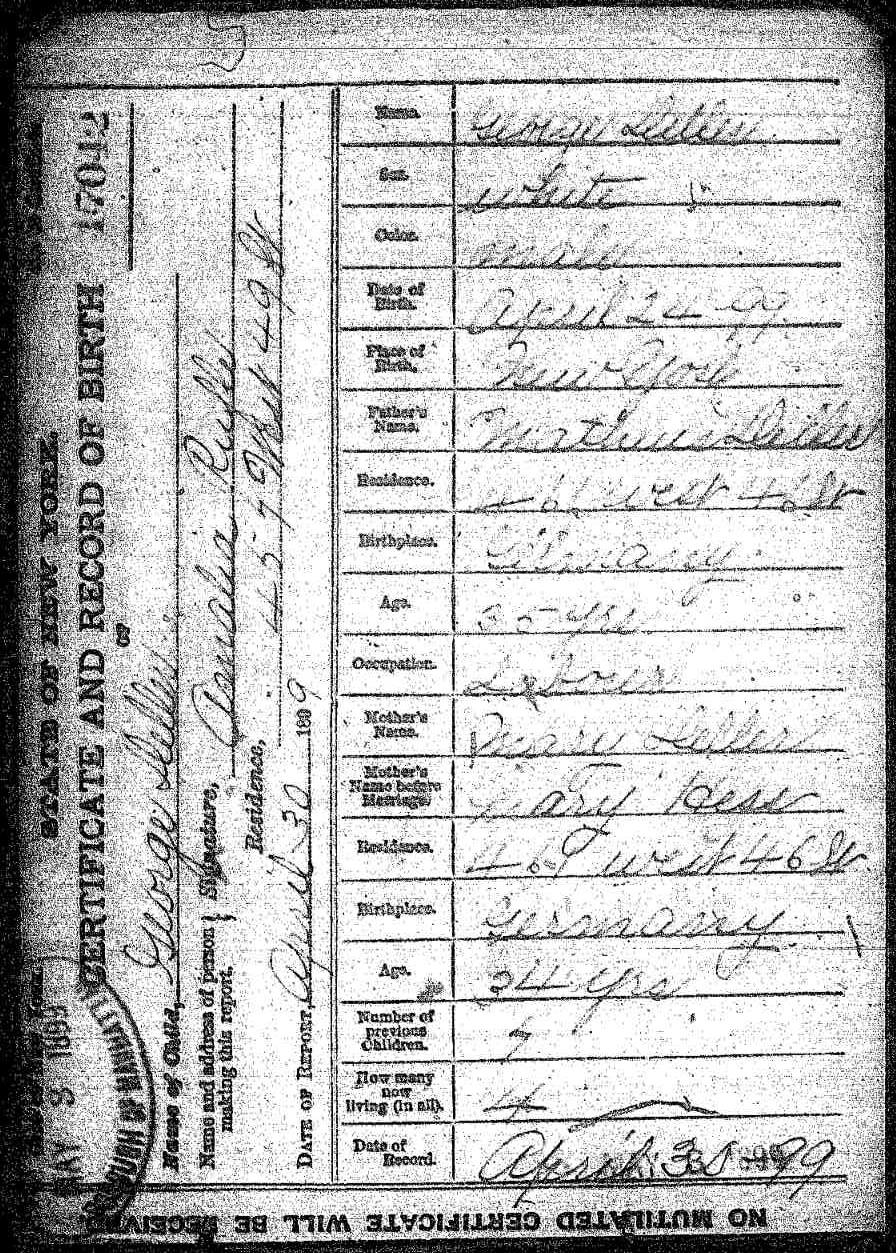 STATE OF NEW YORK.
CERTIFICATE AND RECORD OF BIRTH
17042
OF
Name of Child, George
Name and address of person making this report. } Signature, Amalia
Residence, 457 West 49 St
DATE OF REPORT, April 30 1899
MAY 3 1899
BOROUGH OF MANHATTAN
Name. George
Sex. white
Color. male
Date of Birth. April 24-99.
Place of Birth. New York
Father's Name.
Residence. west 46 St
Birthplace. Germany
Age. 35 yrs
Occupation.
Mother's Name. Mary
Mother's Name before Marriage. Mary Hess
Residence. west 46 St
Birthplace. Germany
Age. 34 yrs
Number of previous Children. 7
How many now living (in all). 4
Date of Record. April 30-99
NO MUTILATED CERTIFICATE WILL BE RECEIVED.